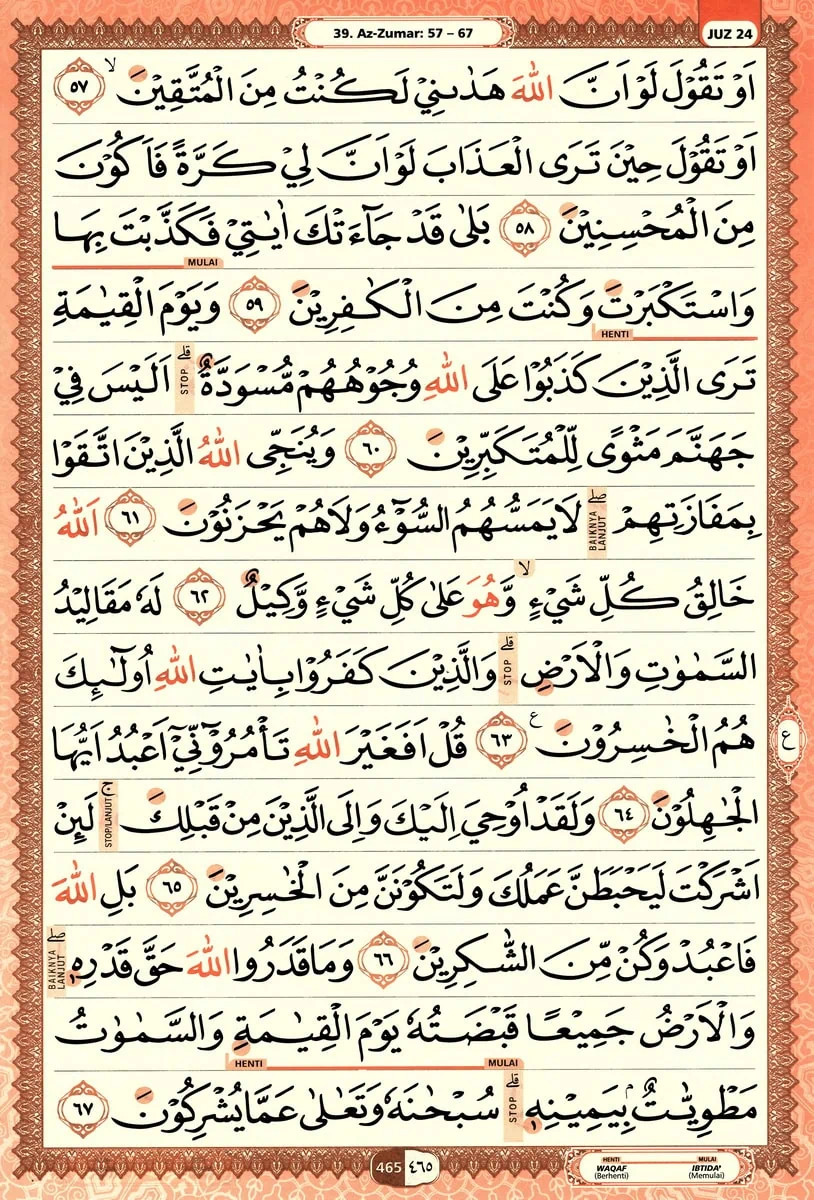 39. Az-Zumar: 57 – 67
JUZ 24
اَوْ تَقُوْلَ لَوْ اَنَّ اللّٰهَ هَدٰىنِيْ لَكُنْتُ مِنَ الْمُتَّقِيْنَ ۙ ٥٧
اَوْ تَقُوْلَ حِيْنَ تَرَى الْعَذَابَ لَوْ اَنَّ لِيْ كَرَّةً فَاَكُوْنَ
مِنَ الْمُحْسِنِيْنَ ٥٨ بَلٰى قَدْ جَاۤءَتْكَ اٰيٰتِيْ فَكَذَّبْتَ بِهَا
MULAI
وَاسْتَكْبَرْتَ وَكُنْتَ مِنَ الْكٰفِرِيْنَ ٥٩ وَيَوْمَ الْقِيٰمَةِ
HENTI
تَرَى الَّذِيْنَ كَذَبُوْا عَلَى اللّٰهِ وُجُوْهُهُمْ مُّسْوَدَّةٌ ۗ STOP اَلَيْسَ فِيْ
جَهَنَّمَ مَثْوًى لِّلْمُتَكَبِّرِيْنَ ٦٠ وَيُنَجِّى اللّٰهُ الَّذِيْنَ اتَّقَوْا
بِمَفَازَتِهِمْ ۖ BAIKNYA LANJUT لَا يَمَسُّهُمُ السُّوْۤءُ وَلَا هُمْ يَحْزَنُوْنَ ٦١ اَللّٰهُ
خَالِقُ كُلِّ شَيْءٍ ۙ وَّهُوَ عَلٰى كُلِّ شَيْءٍ وَّكِيْلٌ ٦٢ لَهٗ مَقَالِيْدُ
السَّمٰوٰتِ وَالْاَرْضِ ۗ STOP وَالَّذِيْنَ كَفَرُوْا بِاٰيٰتِ اللّٰهِ اُولٰۤىِٕكَ
هُمُ الْخٰسِرُوْنَ ع ٦٣ قُلْ اَفَغَيْرَ اللّٰهِ تَأْمُرُوْۤنِّيْٓ اَعْبُدُ اَيُّهَا
ع
الْجٰهِلُوْنَ ٦٤ وَلَقَدْ اُوْحِيَ اِلَيْكَ وَاِلَى الَّذِيْنَ مِنْ قَبْلِكَ ۚ STOP/LANJUT لَىِٕنْ
اَشْرَكْتَ لَيَحْبَطَنَّ عَمَلُكَ وَلَتَكُوْنَنَّ مِنَ الْخٰسِرِيْنَ ٦٥ بَلِ اللّٰهَ
فَاعْبُدْ وَكُنْ مِّنَ الشّٰكِرِيْنَ ٦٦ وَمَا قَدَرُوا اللّٰهَ حَقَّ قَدْرِهٖ ۖ BAIKNYA LANJUT
وَالْاَرْضُ جَمِيْعًا قَبْضَتُهٗ يَوْمَ الْقِيٰمَةِ وَالسَّمٰوٰتُ
MULAI HENTI
مَطْوِيّٰتٌۢ بِيَمِيْنِهٖ ۗ STOP سُبْحٰنَهٗ وَتَعٰلٰى عَمَّا يُشْرِكُوْنَ ٦٧
465 ٤٦٥
HENTI MULAI
WAQAF IBTIDA'
(Berhenti) (Memulai)